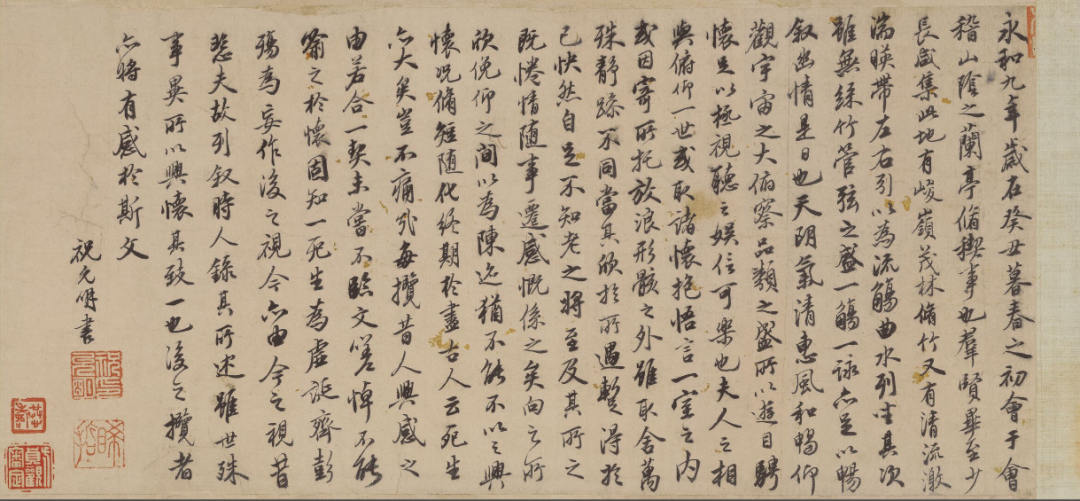 永和九年歲在癸丑暮春之初會于會
稽山陰之蘭亭脩稧事也羣賢畢至少
長咸集此地有峻嶺茂林脩竹又有清流激
湍暎帶左右引以為流觴曲水列坐其次
雖無絲竹管弦之盛一觴一詠亦足以暢
叙幽情是日也天朗氣清惠風和暢仰
觀宇宙之大俯察品類之盛所以遊目騁
懷足以極視聽之娛信可樂也夫人之相
與俯仰一世或取諸懷抱悟言一室之内
或因寄所托放浪形骸之外雖取舍萬
殊静躁不同當其欣於所遇暫得於
己快然自足不知老之將至及其所之
既惓情随事遷感慨係之矣向之所
欣俛仰之間以為陳迹猶不能不以之興
懷況脩短随化終期於盡古人云死生
亦大矣豈不痛哉每攬昔人興感之
由若合一契未嘗不臨文嗟悼不能
喻之於懷固知一死生為虛誕齊彭
殤為妄作後之視今亦由今之視昔
悲夫故列叙時人錄其所述雖世殊
事異所以興懷其致一也後之攬者
亦將有感於斯文
祝允明書